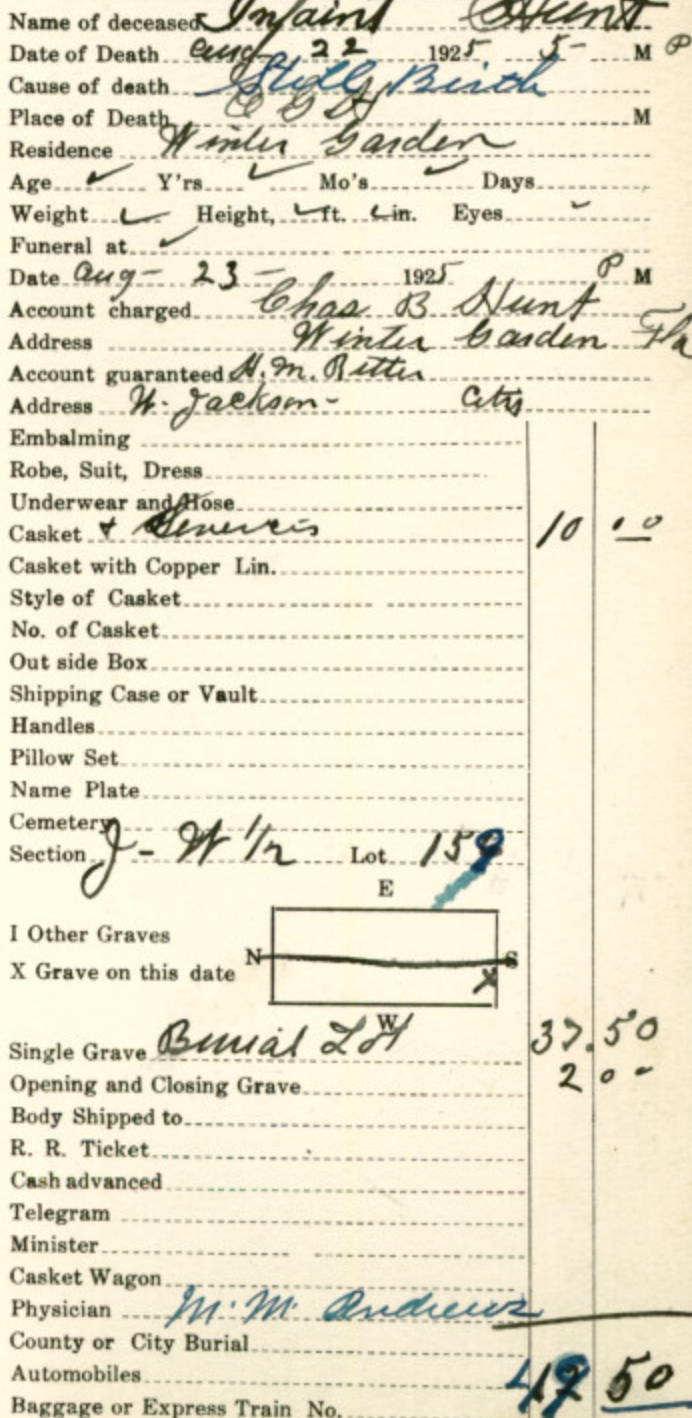 Name of deceased Infant Hunt
Date of Death Aug 22 1925 5- M P
Cause of death Still Birth
Place of Death O G H M
Residence Winter Garden
Age ✓ Y'rs ✓ Mo's ✓ Days
Weight ✓ Height, ✓ ft. ✓ in. Eyes ✓
Funeral at ✓
Date Aug- 23- 1925 P M
Account charged Chas B Hunt
Address Winter Garden Fla
Account guaranteed H. M. Ritter
Address W. Jackson- City
Embalming
Robe, Suit, Dress
Underwear and Hose
Casket + Services 10 00
Casket with Copper Lin.
Style of Casket
No. of Casket
Out side Box
Shipping Case or Vault
Handles
Pillow Set
Name Plate
Cemetery
Section J- W 1/2 Lot 159
E
I Other Graves
N S
X Grave on this date X
W
Single Grave Burial Lot 37.50
Opening and Closing Grave 2 00
Body Shipped to
R. R. Ticket
Cash advanced
Telegram
Minister
Casket Wagon
Physician M. M. Andrews
County or City Burial
Automobiles 49 50
Baggage or Express Train No.